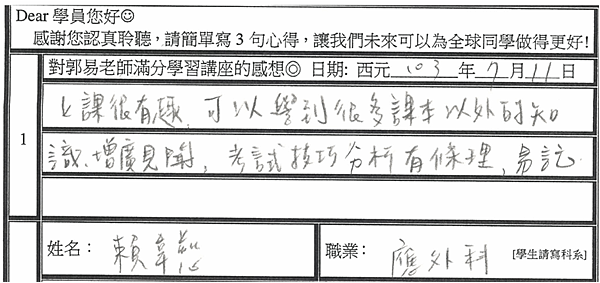 Dear 學員您好☺
感謝您認真聆聽，請簡單寫 3 句心得，讓我們未來可以為全球同學做得更好!
對郭易老師滿分學習講座的感想◎ 日期: 西元 103 年 7 月 11 日
1
上課很有趣，可以學到很多課本以外的知
識、增廣見聞，考試技巧分析有條理，易記.
姓名： 賴韋慈
職業： 應外科 [學生請寫科系]